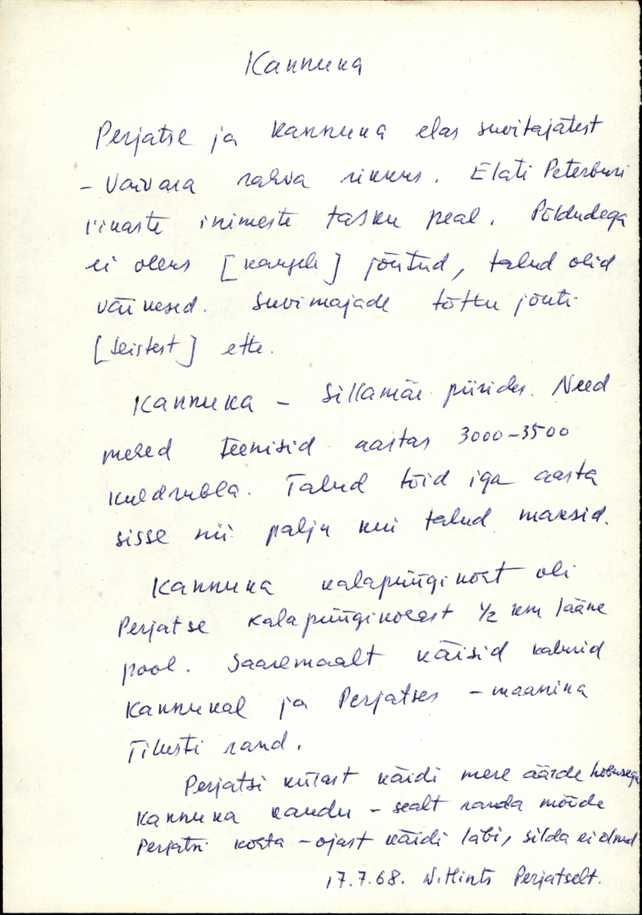 Kannuka
Perjatse ja Kannuka elas suvitajatest
- Vaivara rahva rikkus. Elati Peterburi
rikaste inimeste tasku peal. Põldudega
ei oleks [kaugele] jõutud, talud olid
väikesed. Suvimajade tõttu jõuti
[teistest] ette.
Kannuka - Sillamäe piirides. Need
mehed teenisid aastas 3000-3500
kuldrubla. Talud tõid iga aasta
sisse nii palju kui talud maksid.
Kannuka kalapüügikoht oli
Perjatse kalapüügikohast 1/2 km lääne
pool. Saaremaalt käisid kalurid
Kannukal ja Perjatses - maanina
rand.
Perjatsi külast käidi mere äärde hobusega
Kannuka kaudu - sealt randa mööda
Perjatsi kohta - ojast käidi läbi, silda ei olnud
17.7.68. N. Hints Perjatselt.